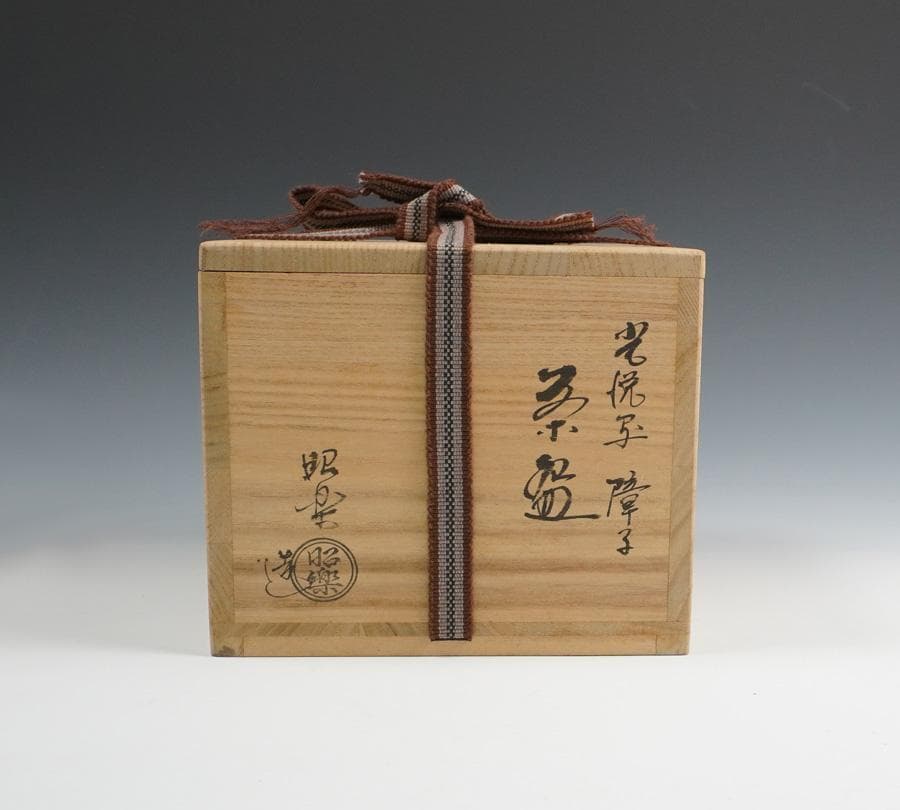 光悦写 障子
茶盌
昭楽
造
昭樂